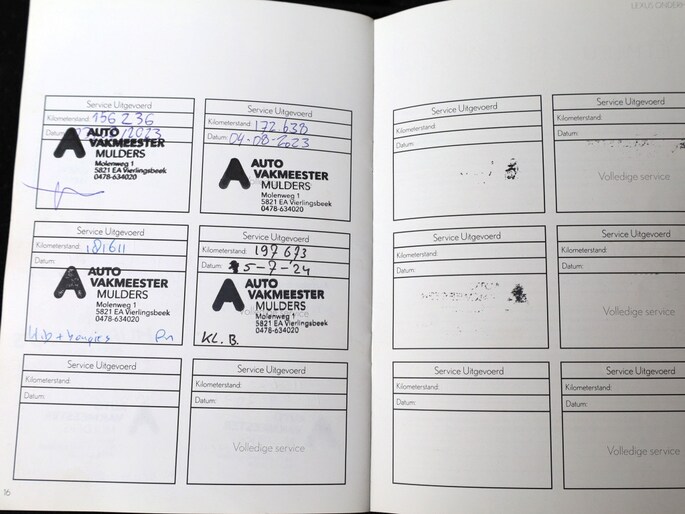 LEXUS ONDERH
Service Uitgevoerd
Kilometerstand: 156 236
Datum: /2023
AUTO
VAKMEESTER
MULDERS
Molenweg 1
5821 EA Vierlingsbeek
0478-634020
Service Uitgevoerd
Kilometerstand: 172.638
Datum: 04-08-2023
AUTO
VAKMEESTER
MULDERS
Molenweg 1
5821 EA Vierlingsbeek
0478-634020
Service Uitgevoerd
Kilometerstand:
Datum:
Service Uitgevoerd
Kilometerstand:
Datum:
Volledige service
Service Uitgevoerd
Kilometerstand: 181611
Datum:
AUTO
VAKMEESTER
MULDERS
Molenweg 1
5821 EA Vierlingsbeek
0478-634020
Service Uitgevoerd
Kilometerstand: 197673
Datum: 5-7-'24
AUTO
VAKMEESTER
MULDERS
Molenweg 1
5821 EA Vierlingsbeek
0478-634020
KL. B.
Service Uitgevoerd
Kilometerstand:
Datum:
Service Uitgevoerd
Kilometerstand:
Datum:
Volledige service
Service Uitgevoerd
Kilometerstand:
Datum:
Service Uitgevoerd
Kilometerstand:
Datum:
Volledige service
Service Uitgevoerd
Kilometerstand:
Datum:
Service Uitgevoerd
Kilometerstand:
Datum:
Volledige service
16